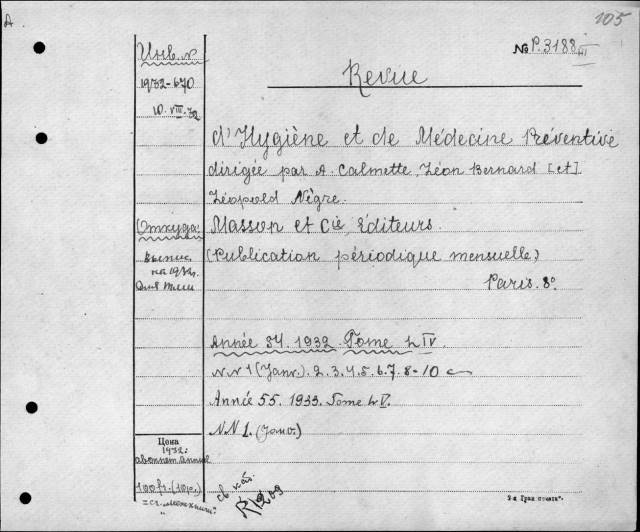 A
105
Инв. №
№ P.3188 III
Revue
1932-670
10.VIII.32
d'Hygiène et de Médecine Préventive
dirigée par A. Calmette, Léon Bernard [et]
Léopold Nègre.
Откуда:
Masson et Cie Éditeurs.
выпис.
на 1932г.
(Publication périodique mensuelle)
Paris. 8°
Année 54. 1932. Tome LIV
NN 1 (Janv.). 2. 3. 4. 5. 6. 7. 8-10
Année 55. 1933. Tome LV.
NN 1. (Janv.)
Цена
1932:
abonnem. annuel
100 fr. (10р.)
св. каб.